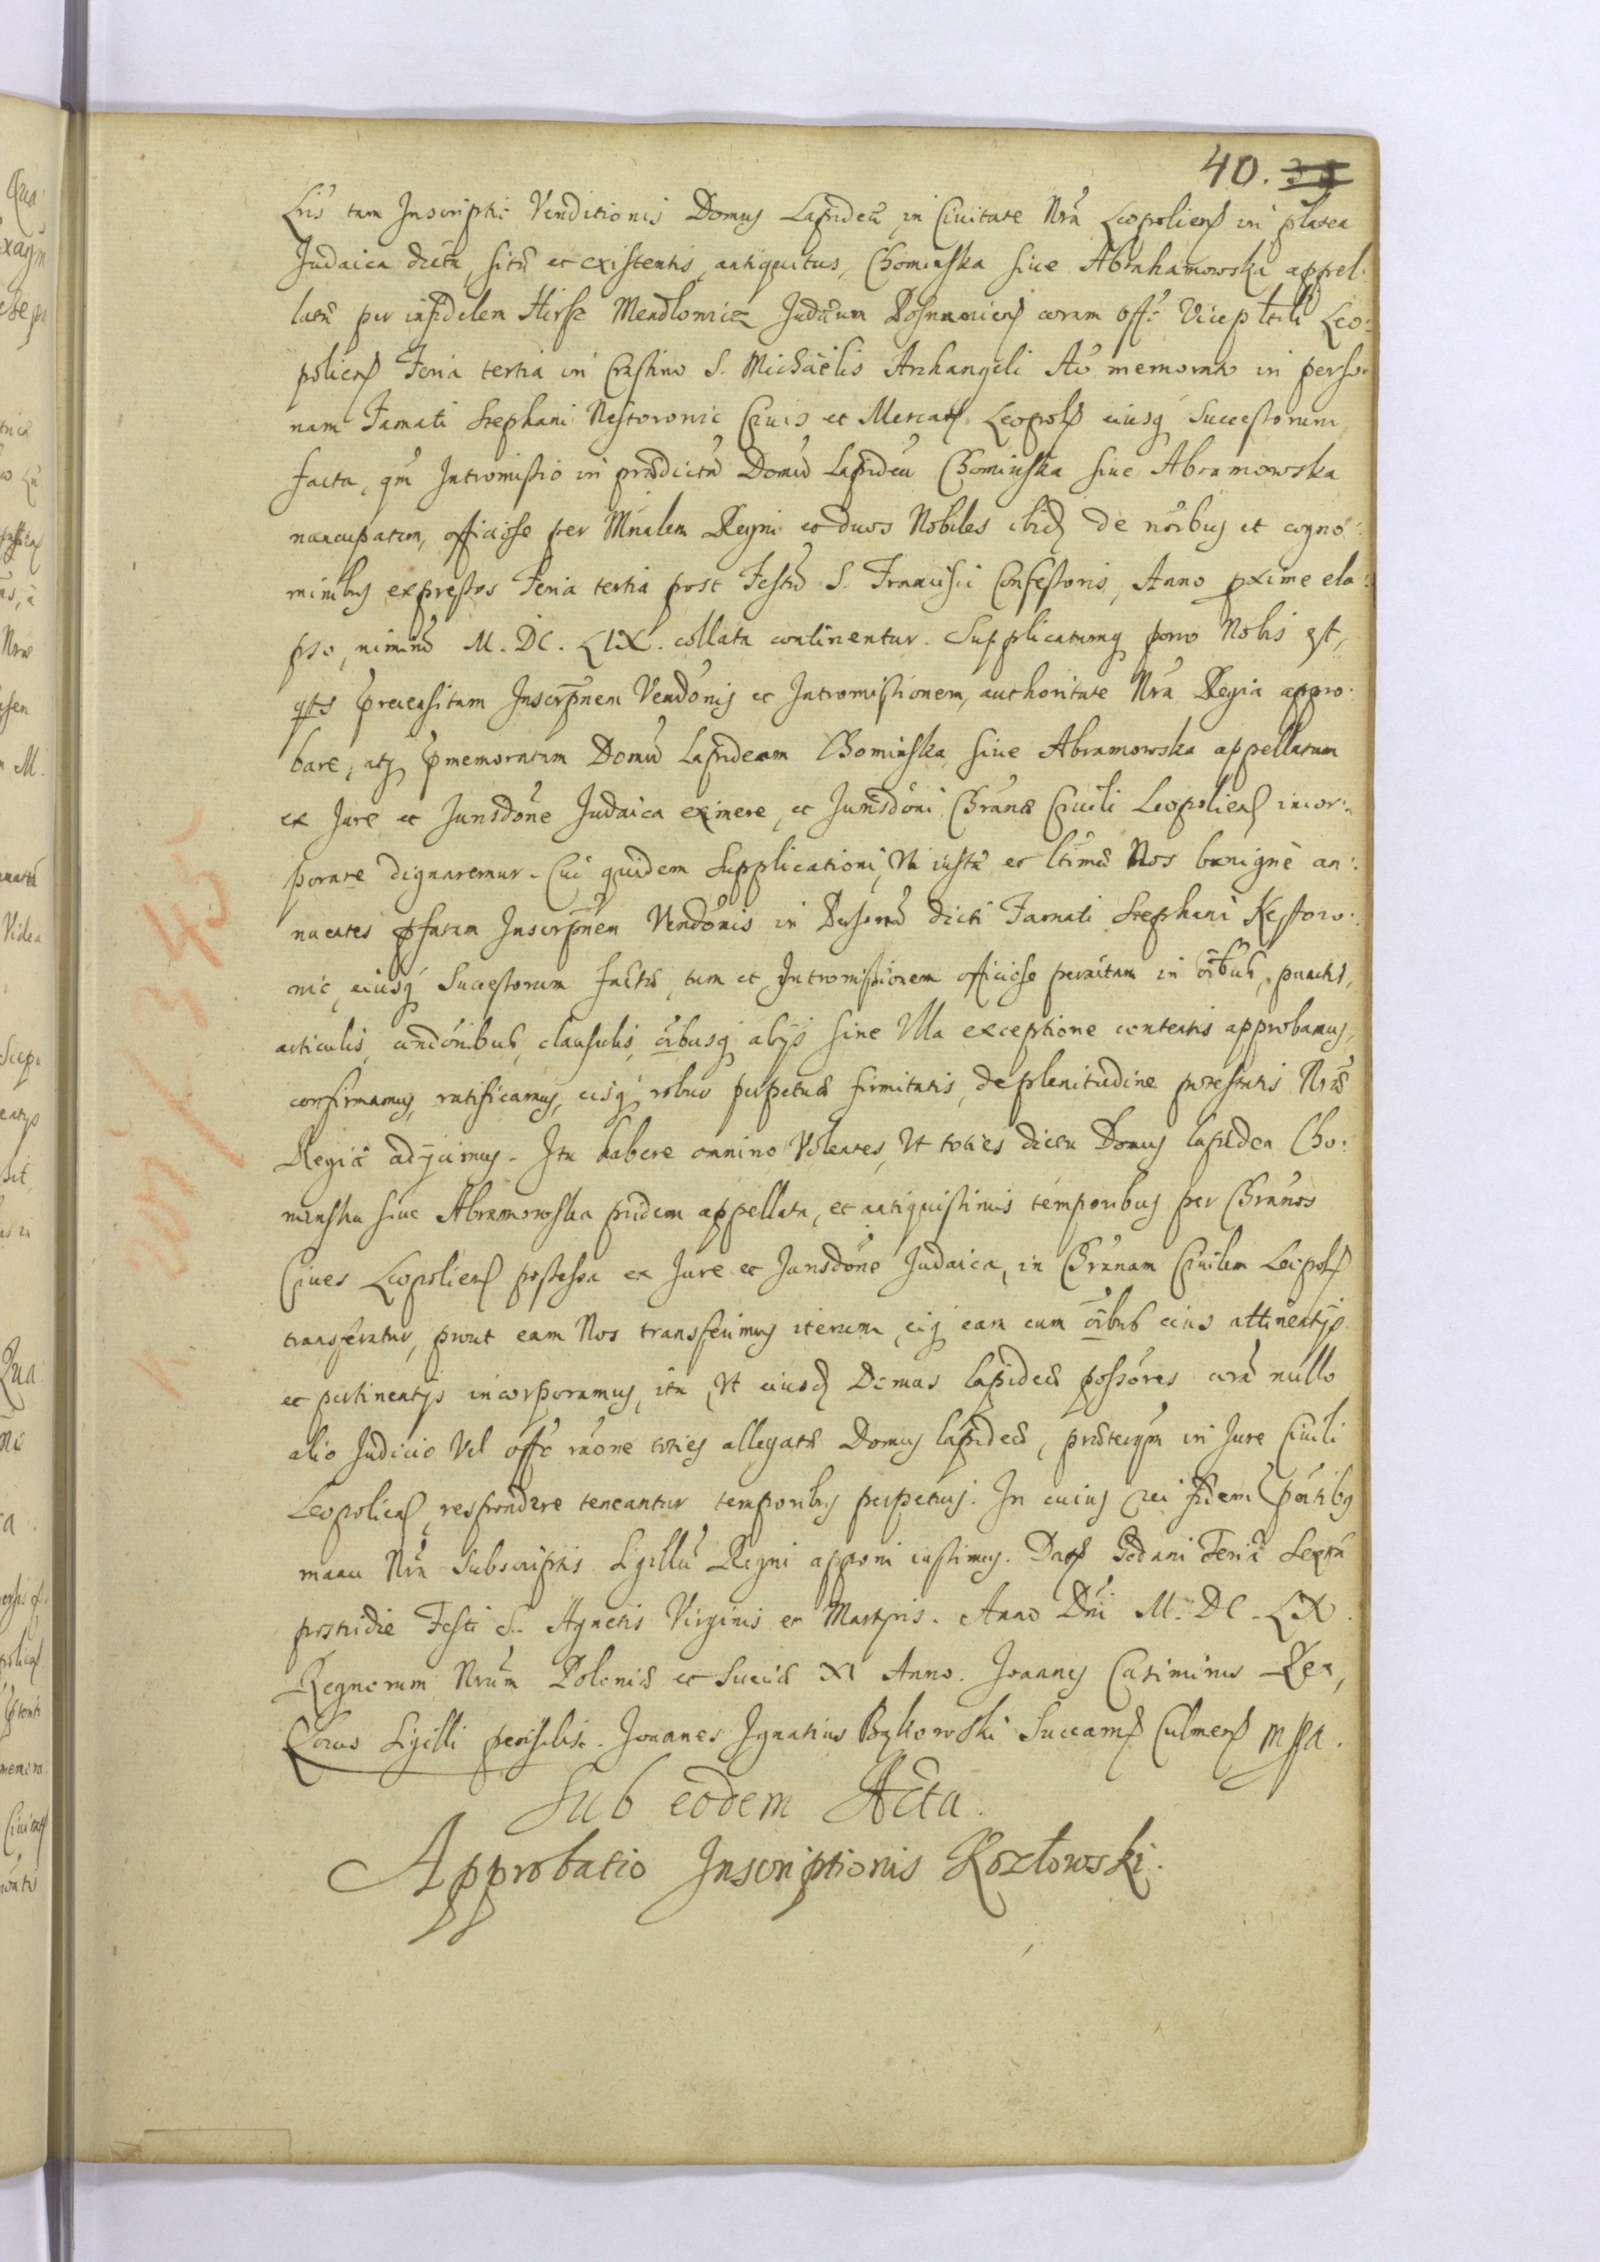 40. 38
Lris tam Inscriptio Venditionis Domus Lapideæ, in Civitate Nrã Leopolien in platea
Judaica dicta, sitæ et existentis, antiquitus, Chominska sive Abrahamowska appel:
latæ per infidelem Hirsz Mendlowicz Judæum Posnanien coram Offo Vice Leo:
polien Feria tertia in Crastino S. Michaëlis Archangeli Aõ memorato in perso:
nam Famati Stephani Nestorowic Civis et Mercat Leopol eiusq Successorum
facta, qm̃ Intromissio in prædictã Domũ Lapideã Chominska sive Abramowska
nuncupatam, officiose per Mnãlem Regni et duos Nobiles ibid de nõibus et cogno:
minibus expressos Feria tertia post Festũ S. Francisci Confessoris, Anno pxime ela:
pso, nimirũ M. DC. LIX. collata continentur. Supplicatumq porro Nobis est,
qts præcensitam Inscrpñem Vendõnis et Intromissionem, authoritate Nrã Regia appro:
bare, atq pmemoratam Domũ Lapideam Chominska sive Abramowska appellatam
ex Jure et Jurisdõne Judaica eximere, et Jurisdõni Chrãnæ Civili Leopolien incor:
porare dignaremur. Cui quidem Supplicationi, Uti iustæ et ltimæ Nos benignè an:
nuentes pfatam Inscrpñem Vendõnis in Personã dicti Famati Stephani Nestoro:
wic, eiusq Successorum factã, tum et Intromissionem officiose peractam in õibus, punctis,
articulis, condõnibus, clausulis, õibusq alijs sine Ulla exceptione contentis approbamus,
confirmamus, ratificamus, eisq robur perpetuæ firmitatis, de plenitudine potestatis Nræ
Regiæ adijcimus. Ita habere omnino Volentes, Ut toties dicta Domus lapidea Cho:
minska sive Abramowska pridem appellata, et antiquissimis temporibus per Chrãnos
Cives Leopolien possessa ex Jure et Jurisdõne Judaica, in Chrãnam Civilem Leopol
transferatur, prout eam Nos transferimus iterum, eiq eam cum õibus eius attinentijs
et pertinentijs incorporamus, ita, Ut eiusd Domus lapideæ possõres corã nullo
alio Judicio Vel Offo rãone toties allegatæ Domus lapideæ, præterqm in Jure Civili
Leopolien, respondere teneantur temporibus perpetuis. In cuius rei fidem pñtibus
manu Nrã Subscriptis Sigillũ Regni apponi iussimus. Dat Gedani Feriã Sexta
postridie Festi S. Agnetis Virginis et Martyris. Anno Dñi M. DC. LX.
Regnorum Nrũm Poloniæ et Sueciæ XI Anno. Joannes Casimirus Rex,
Locus Sigilli pensilis. Joannes Ignatius Bąkowski Succam Culmen mpa.
Sub eodem Acta.
Approbatio Inscriptionis Kozłowski.